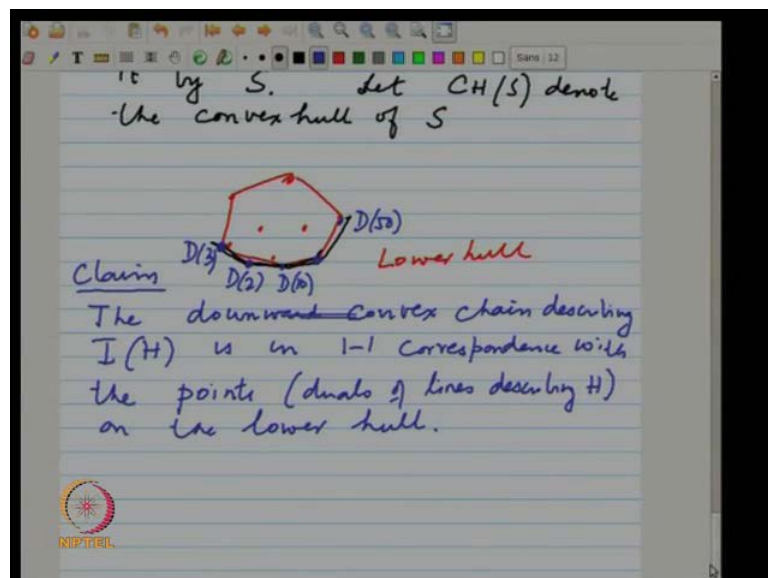 Sans 12
it by S. Let CH(S) denote
the convex hull of S
D(50)
D(3)
Lower hull
D(2) D(10)
Claim
The downward convex chain describing
I(H) is in 1-1 correspondence with
the points (duals of lines describing H)
on the lower hull.
NPTEL